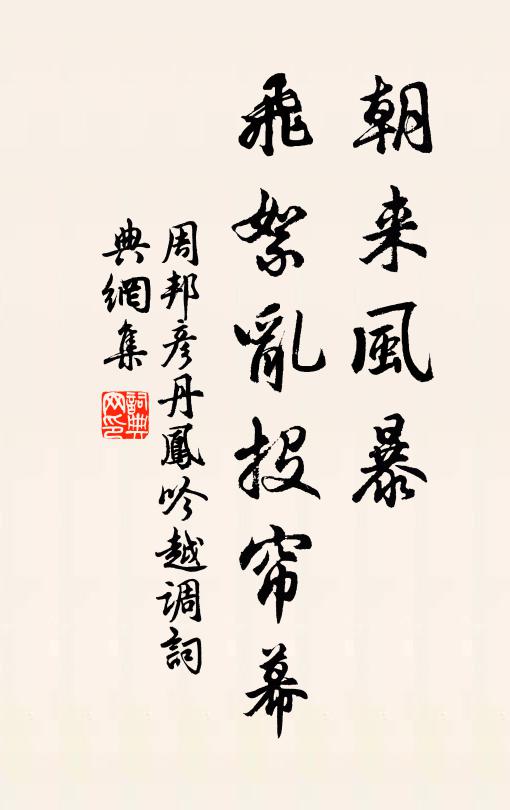 朝来風暴
飛絮亂投帘幕
周邦彦丹鳳吟越调詞
典網集
詞典
网印